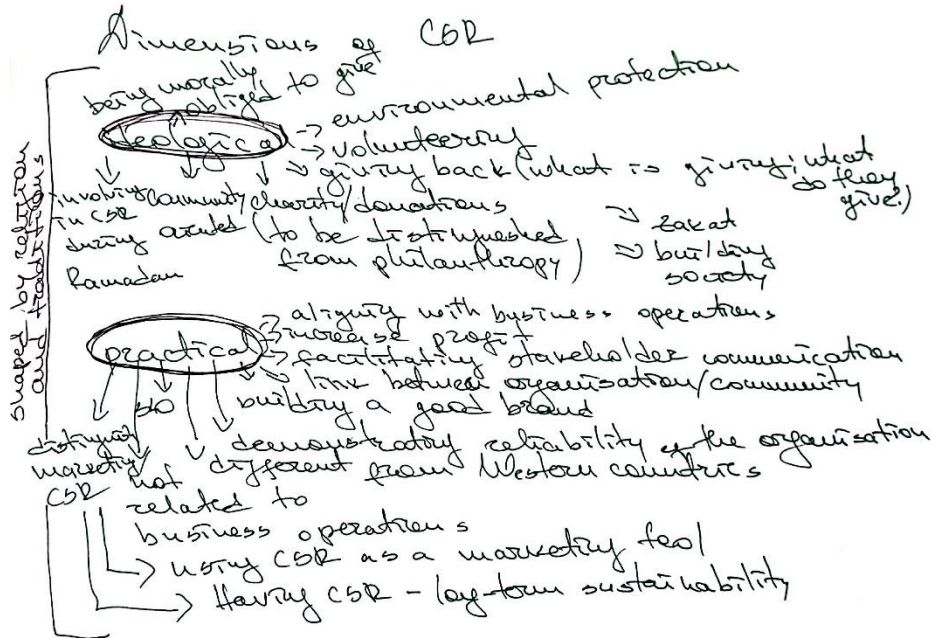 Dimensions of CSR
being morally
obliged to give
teological
→ environmental protection
→ volunteering
→ giving back (what is giving; what
do they
give?)
involving
in CSR
during
Ramadan
community
around
charity/donations
(to be distinguished
from philanthropy)
→ zakat
→ building
society
shaped by religion
and traditions
practical
→ aligning with business operations
→ increase profit
→ facilitating stakeholder communication
→ link between organisation/community
building a good brand
demonstrating reliability of the organisation
different from Western countries
distinguish
marketing
CSR
not
related to
business operations
using CSR as a marketing tool
Having CSR - long-term sustainability